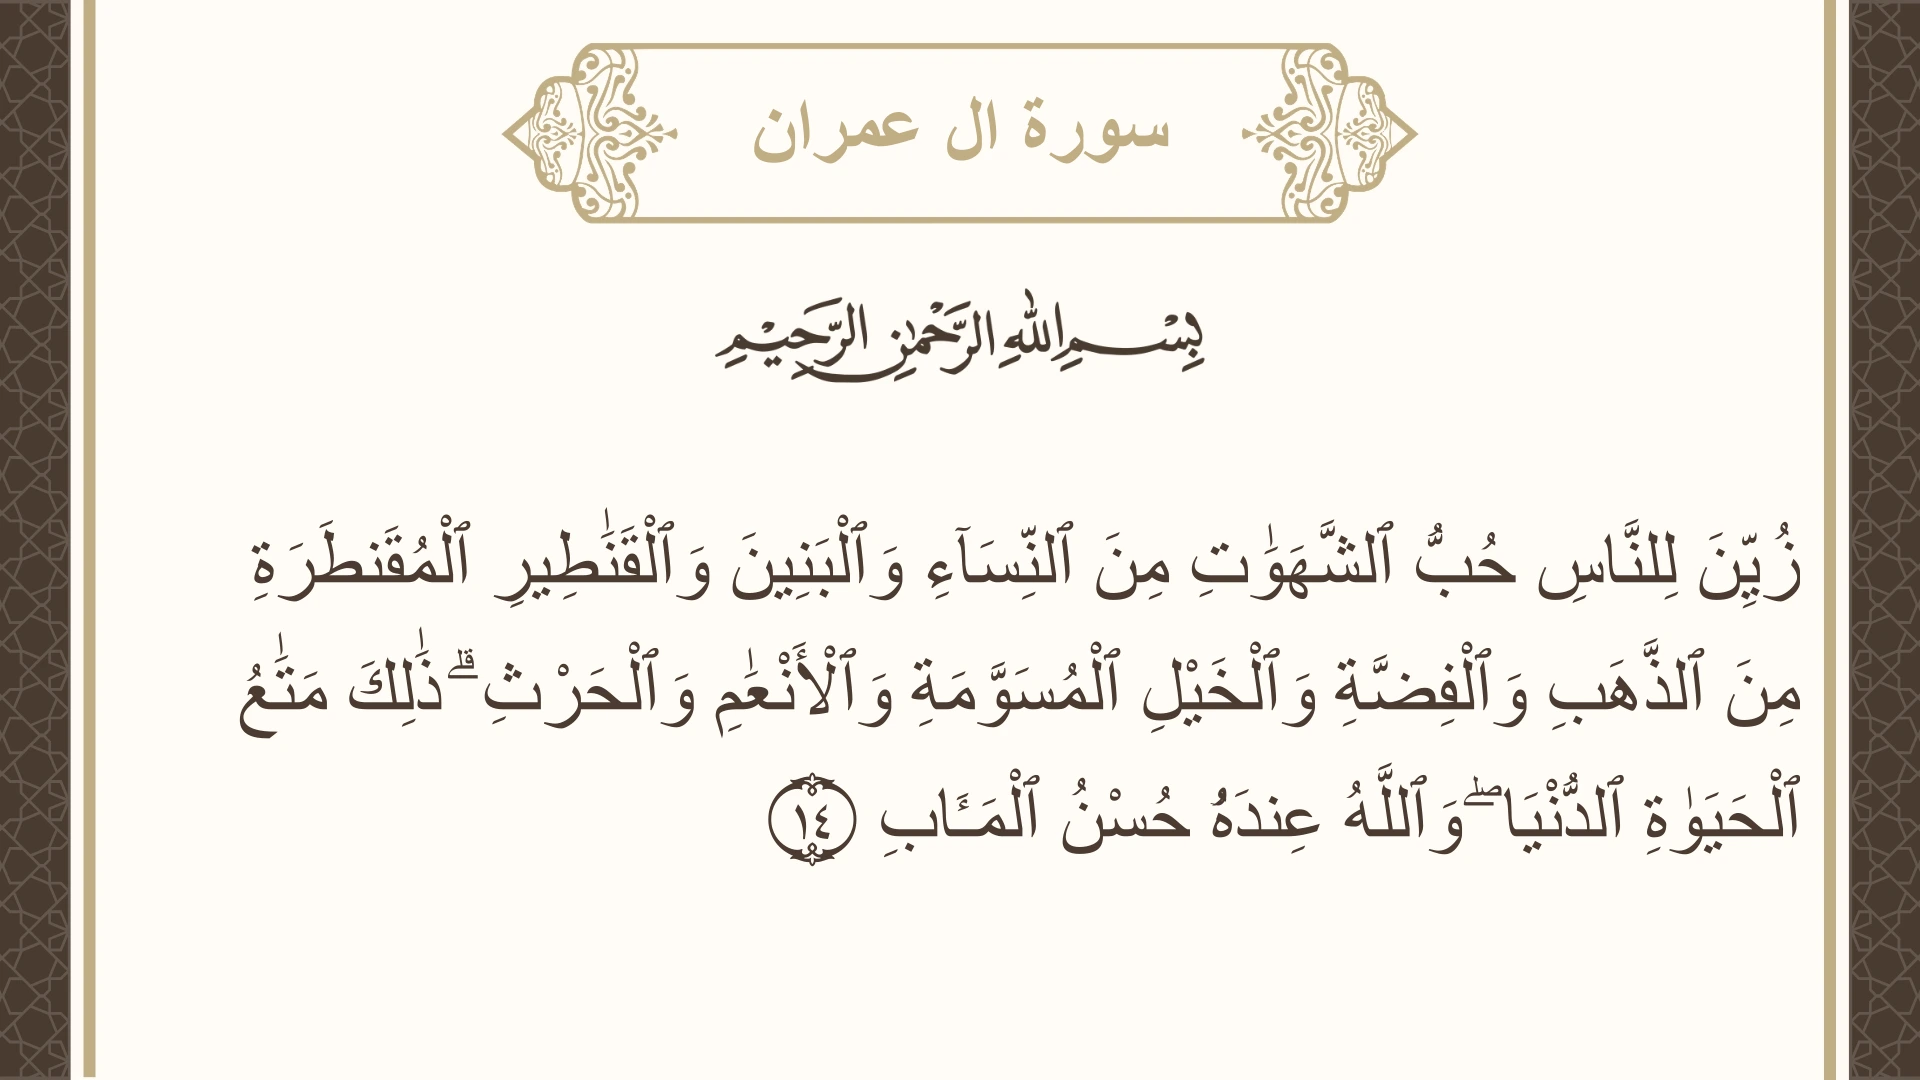 سورة ال عمران
بِسْمِ اللهِ الرَّحْمٰنِ الرَّحِيْمِ
زُيِّنَ لِلنَّاسِ حُبُّ ٱلشَّهَوَٰتِ مِنَ ٱلنِّسَآءِ وَٱلْبَنِينَ وَٱلْقَنَٰطِيرِ ٱلْمُقَنطَرَةِ
مِنَ ٱلذَّهَبِ وَٱلْفِضَّةِ وَٱلْخَيْلِ ٱلْمُسَوَّمَةِ وَٱلْأَنْعَٰمِ وَٱلْحَرْثِ ۗ ذَٰلِكَ مَتَٰعُ
ٱلْحَيَوٰةِ ٱلدُّنْيَا ۖ وَٱللَّهُ عِندَهُۥ حُسْنُ ٱلْمَـَٔابِ ١٤